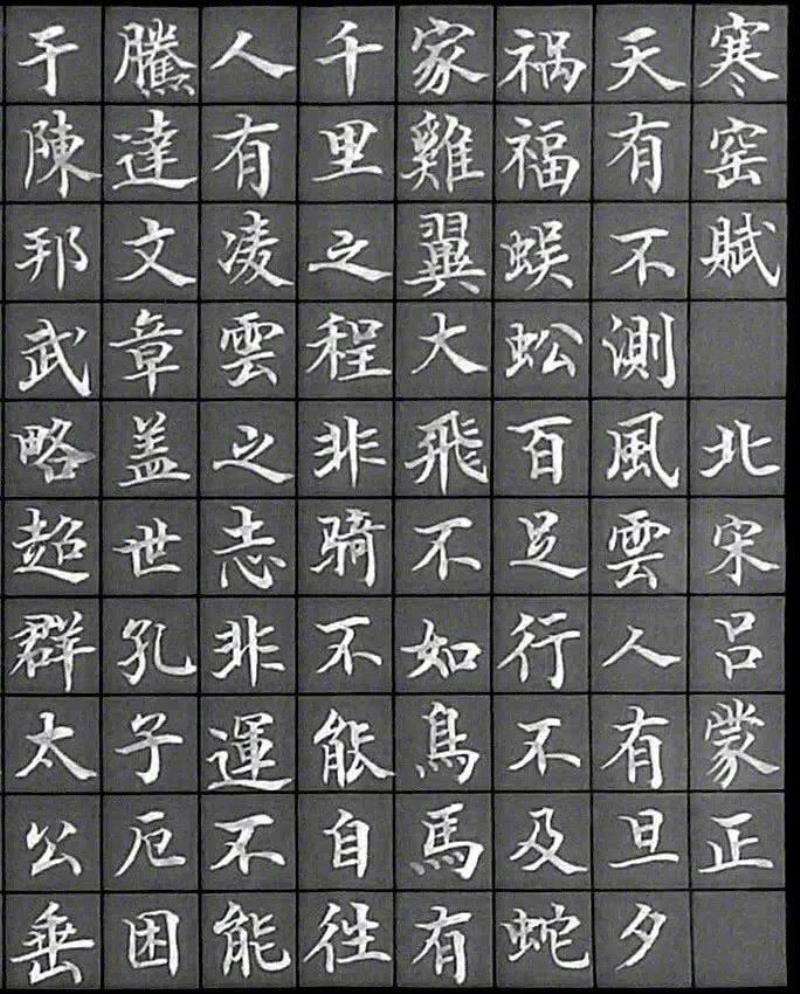 寒窑賦 北宋呂蒙正
天有不測風雲人有旦夕
祸福蜈蚣百足行不及蛇
家雞翼大飛不如鳥馬有
千里之程非骑不能自往
人有凌雲之志非運不能
騰達文章盖世孔子厄困
于陳邦武略超群太公垂